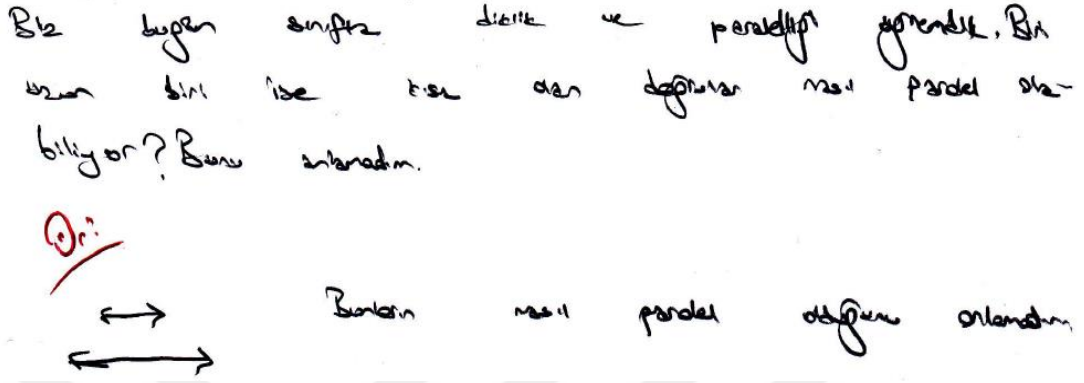 Biz bugün sınıfta diklik ve paralelliği öğrendik. Biri
uzun biri ise kısa olan doğrular nasıl paralel ola-
biliyor? Bunu anlamadım.
Ör:
Bunların nasıl paralel olduğunu anlamadım